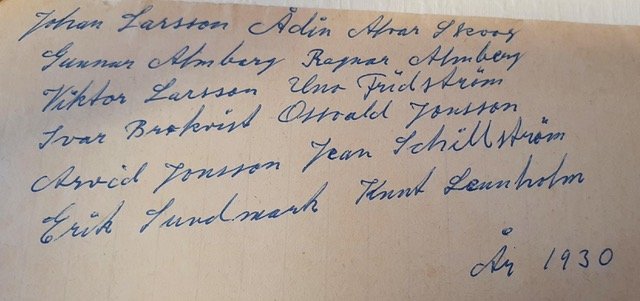 Johan Larsson Ådin Alvar Skoog
Gunnar Almberg Ragnar Almberg
Viktor Larsson Uno Fridström
Ivar Brokvist Osvald Jonsson
Arvid Jonsson Jean Schillström
Erik Sundmark Knut Lennholm
År 1930